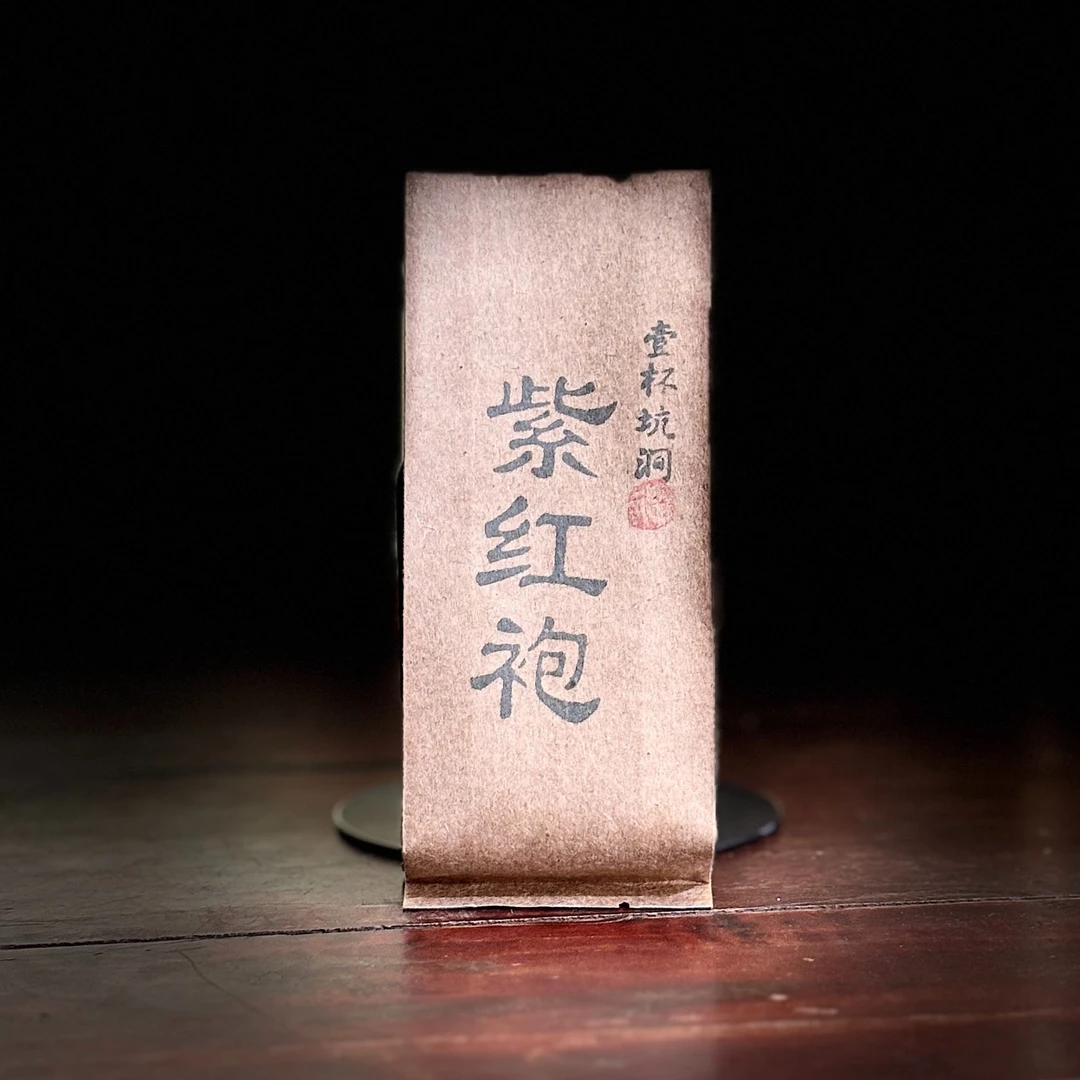 壹杯坑涧
紫红袍